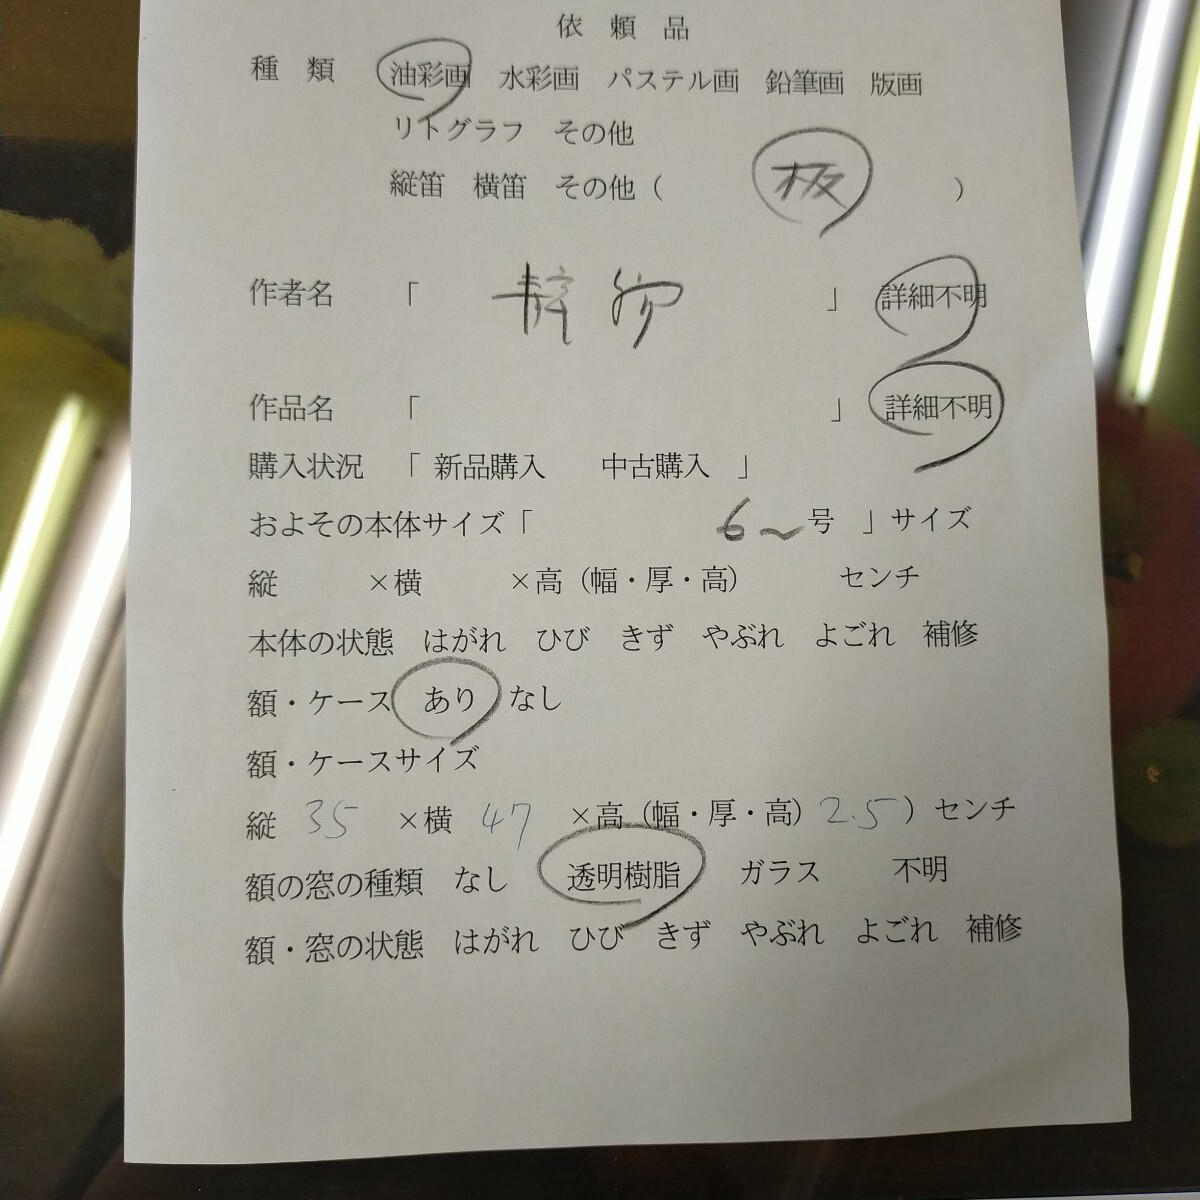 依頼品
種類 油彩画 水彩画 パステル画 鉛筆画 版画
リトグラフ その他
縦笛 横笛 その他( 板 )
作者名 「 」 詳細不明
作品名 「 」 詳細不明
購入状況 「 新品購入 中古購入 」
およその本体サイズ「 6~号 」サイズ
縦 ×横 ×高(幅・厚・高) センチ
本体の状態 はがれ ひび きず やぶれ よごれ 補修
額・ケース あり なし
額・ケースサイズ
縦 35 ×横 47 ×高(幅・厚・高) 2.5) センチ
額の窓の種類 なし 透明樹脂 ガラス 不明
額・窓の状態 はがれ ひび きず やぶれ よごれ 補修